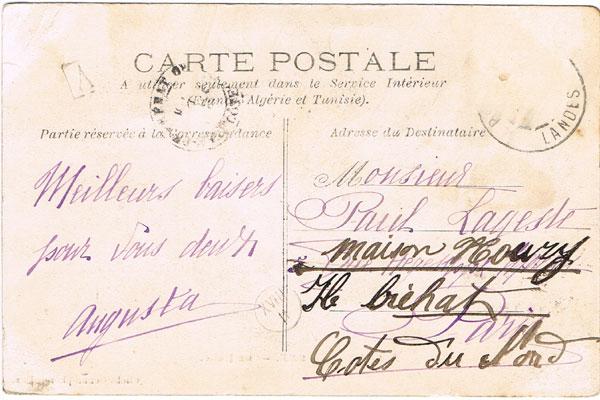 CARTE POSTALE
A utiliser seulement dans le Service Intérieur
(France, Algérie et Tunisie).
Partie réservée à la correspondance
Adresse du Destinataire
LANDES
Meilleurs baisers
pour Vous deux
Augusta
Monsieur
Paul Lageste
maison Houzy
Ile bréhat
Paris
Cotes du Nord